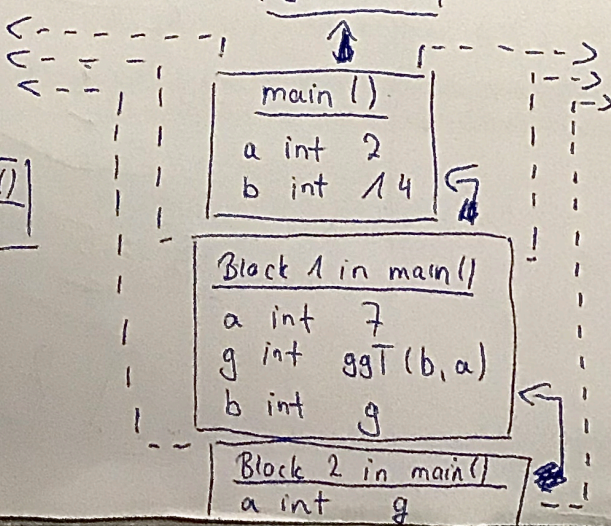 main ()
a int 2
b int 14
()
Block 1 in main()
a int 7
g int ggT (b, a)
b int g
Block 2 in main()
a int g